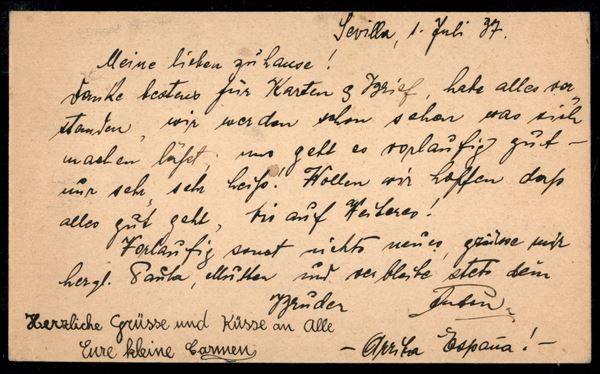 Sevilla, 1. Juli 37.
Meine lieben zuhause!
danke bestens für Karten & Brief, habe alles ver-
standen, wir werden schon sehen was sich
machen läßt, uns geht es vorläufig gut –
nur sehr, sehr heiß! Wollen wir hoffen daß
alles gut geht, bis auf Weiteres!
Vorläufig sonst nichts neues, grüsse mir
hergl. Paula, Mutter und verbleibe stets dein
Bruder
Herzliche Grüsse und Küsse an Alle
Eure kleine Carmen
– Arriba España! –